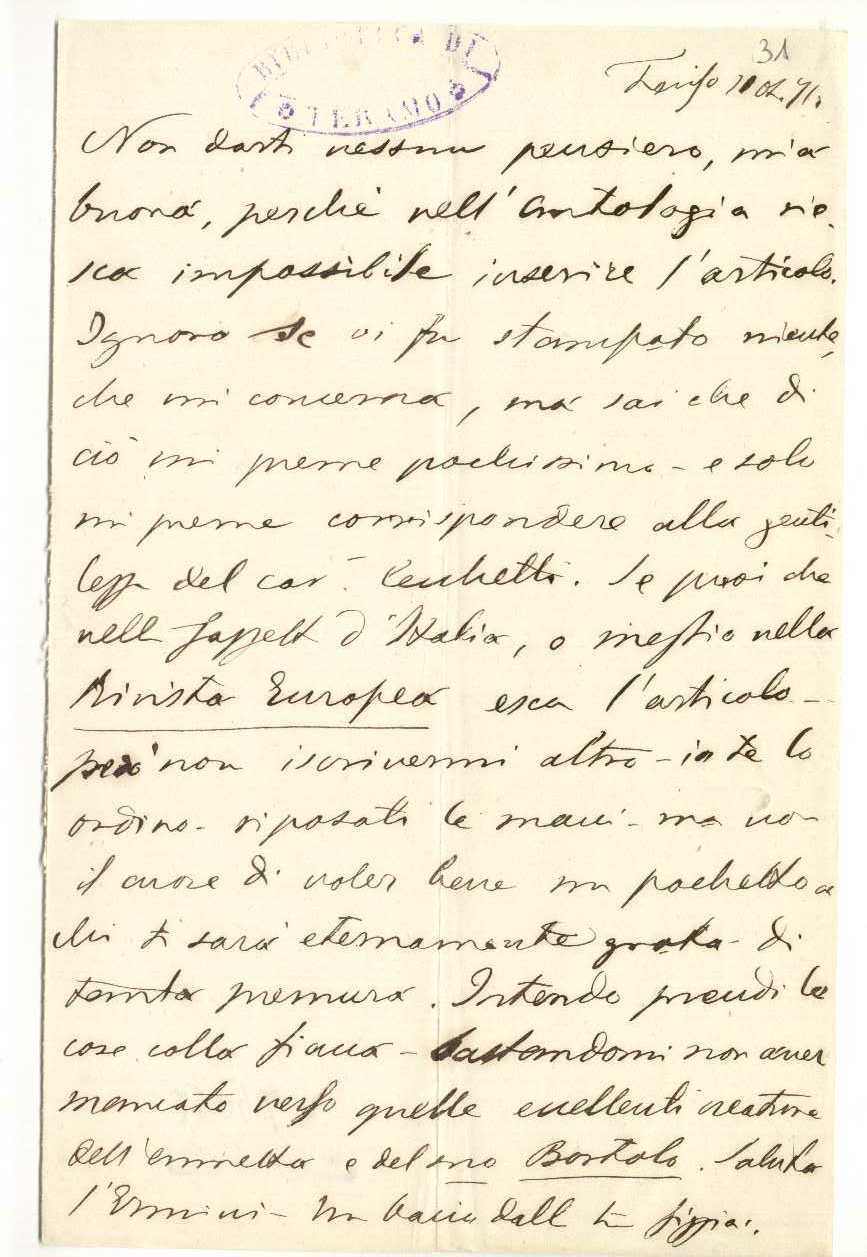 31
BIBLIOTECA DI
TERAMO
71.
Non darti nessun pensiero, mia
buona, perchè nell'Antologia rie-
sca impossibile inserire l'articolo.
Ignoro se vi fu stampato niente,
che mi concerna, ma sai che di
ciò mi preme pochissimo - e solo
mi preme corrispondere alla genti-
lezza del cav. Cecchetti. Se puoi che
nella Gazzetta d'Italia, o meglio nella
Rivista Europea esca l'articolo -
però non iscrivermi altro - io te lo
ordino - riposati le mani - ma non
il cuore di voler bene un pochetto a
chi ti sarà eternamente grata di
tanta premura. Intendo prendi le
cose colla fiacca - bastandomi non aver
mancato verso quelle eccellenti creature
dell'Emmetta e del suo Bortolo. Saluta
l'Ermini - Un bacio dalla tu